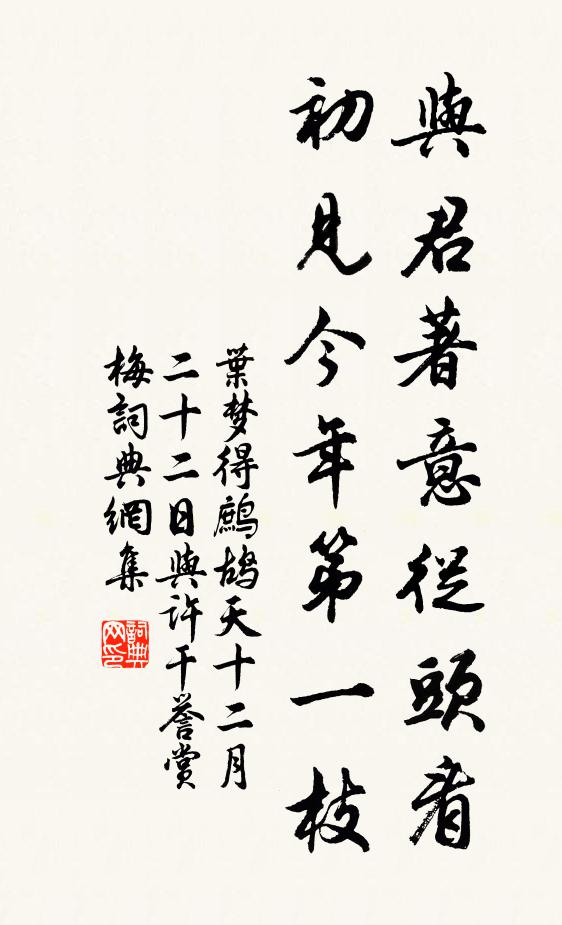 與君著意從頭看
初見今年第一枝
葉梦得鷓鴣天十二月
二十二日與許干譽賞
梅詞典網集
詞典
网印